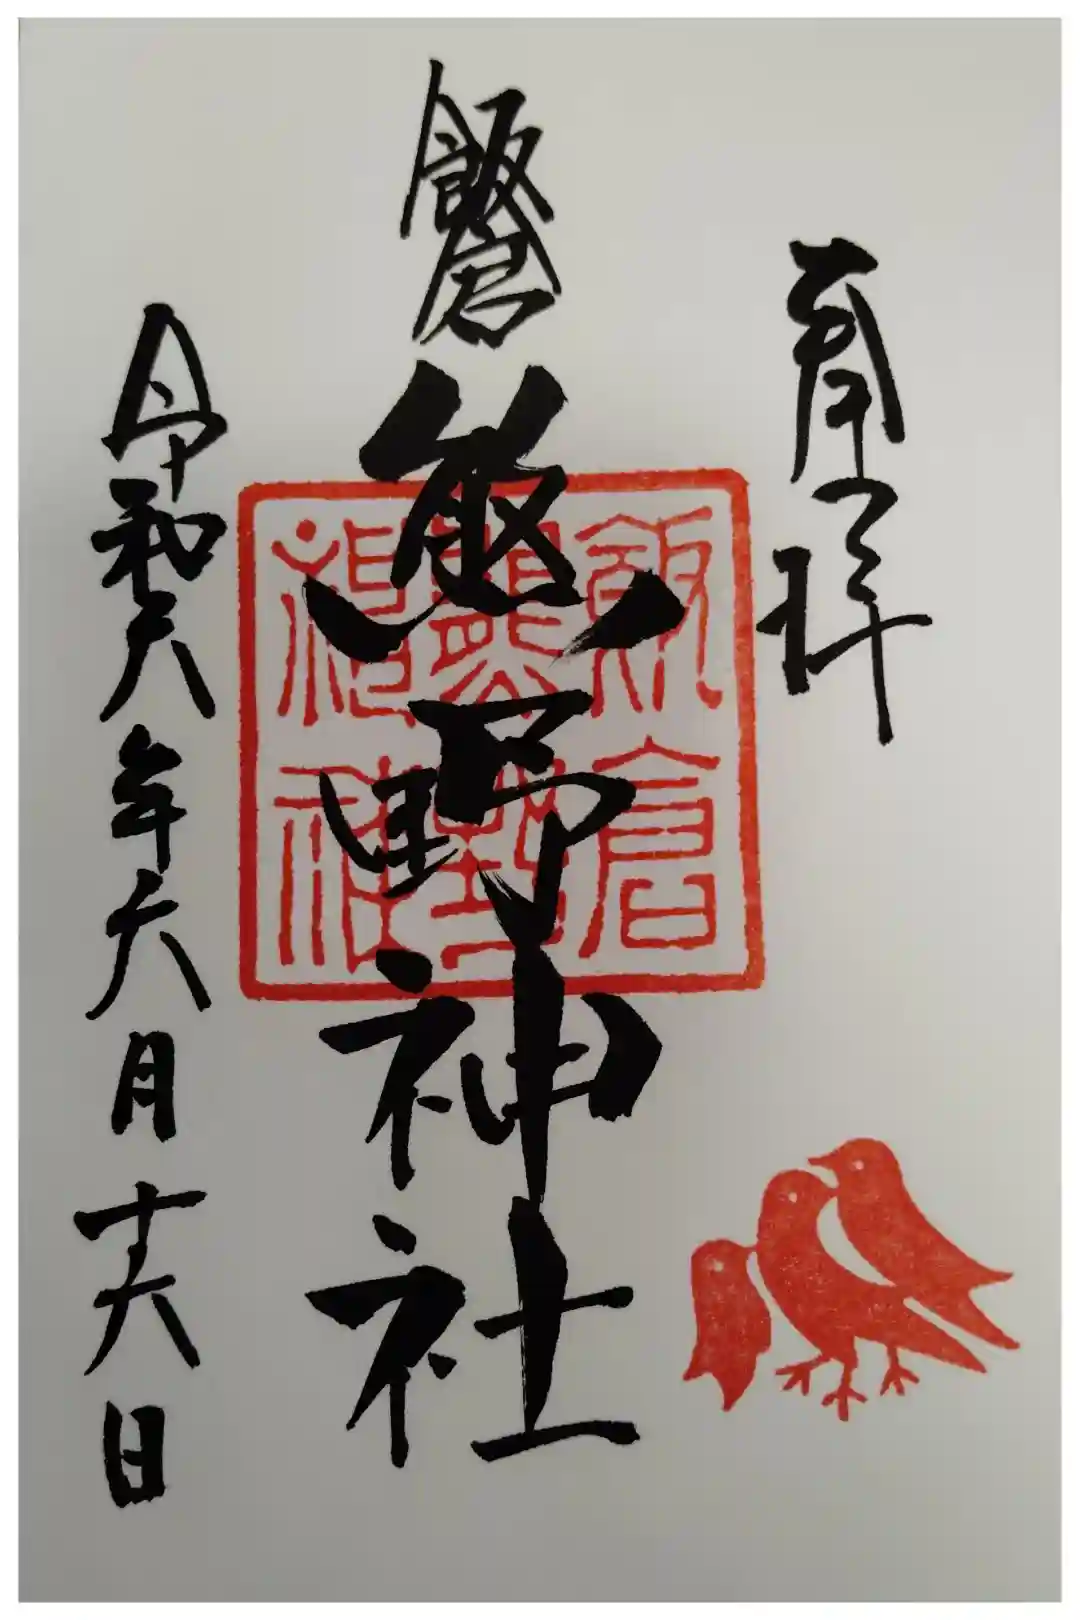 奉拝
飯倉
熊野神社
令和六年六月十六日
飯倉
熊野